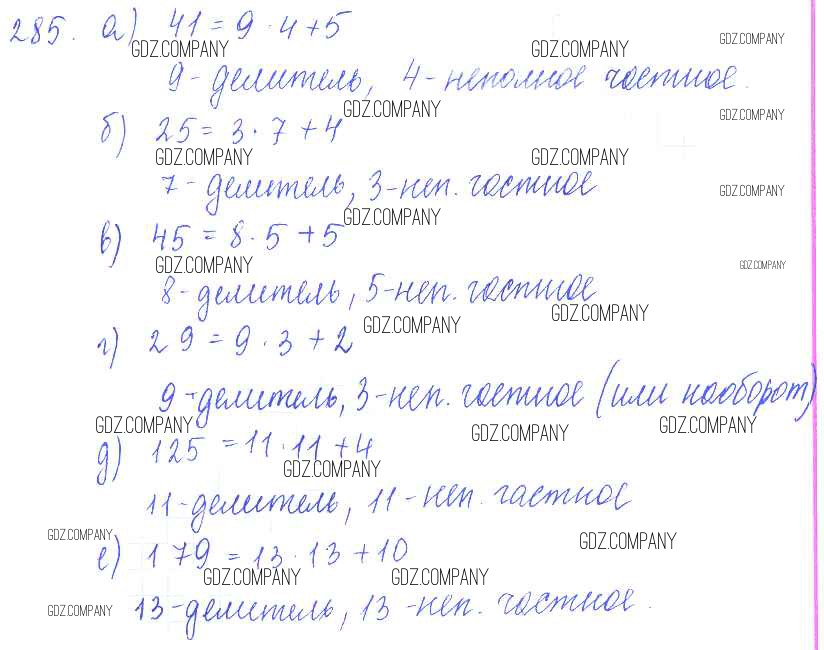 285. а) 41 = 9 · 4 + 5
GDZ.COMPANY GDZ.COMPANY GDZ.COMPANY
9 - делитель, 4 - неполное частное.
GDZ.COMPANY GDZ.COMPANY
б) 25 = 3 · 7 + 4
GDZ.COMPANY GDZ.COMPANY
7 - делитель, 3 - неп. частное GDZ.COMPANY
GDZ.COMPANY
в) 45 = 8 · 5 + 5
GDZ.COMPANY GDZ.COMPANY
8 - делитель, 5 - неп. частное
GDZ.COMPANY GDZ.COMPANY
г) 29 = 9 · 3 + 2
9 - делитель, 3 - неп. частное (или наоборот)
GDZ.COMPANY GDZ.COMPANY GDZ.COMPANY
д) 125 = 11 · 11 + 4
GDZ.COMPANY
11 - делитель, 11 - неп. частное
GDZ.COMPANY GDZ.COMPANY
е) 179 = 13 · 13 + 10
GDZ.COMPANY GDZ.COMPANY
GDZ.COMPANY 13 - делитель, 13 - неп. частное.